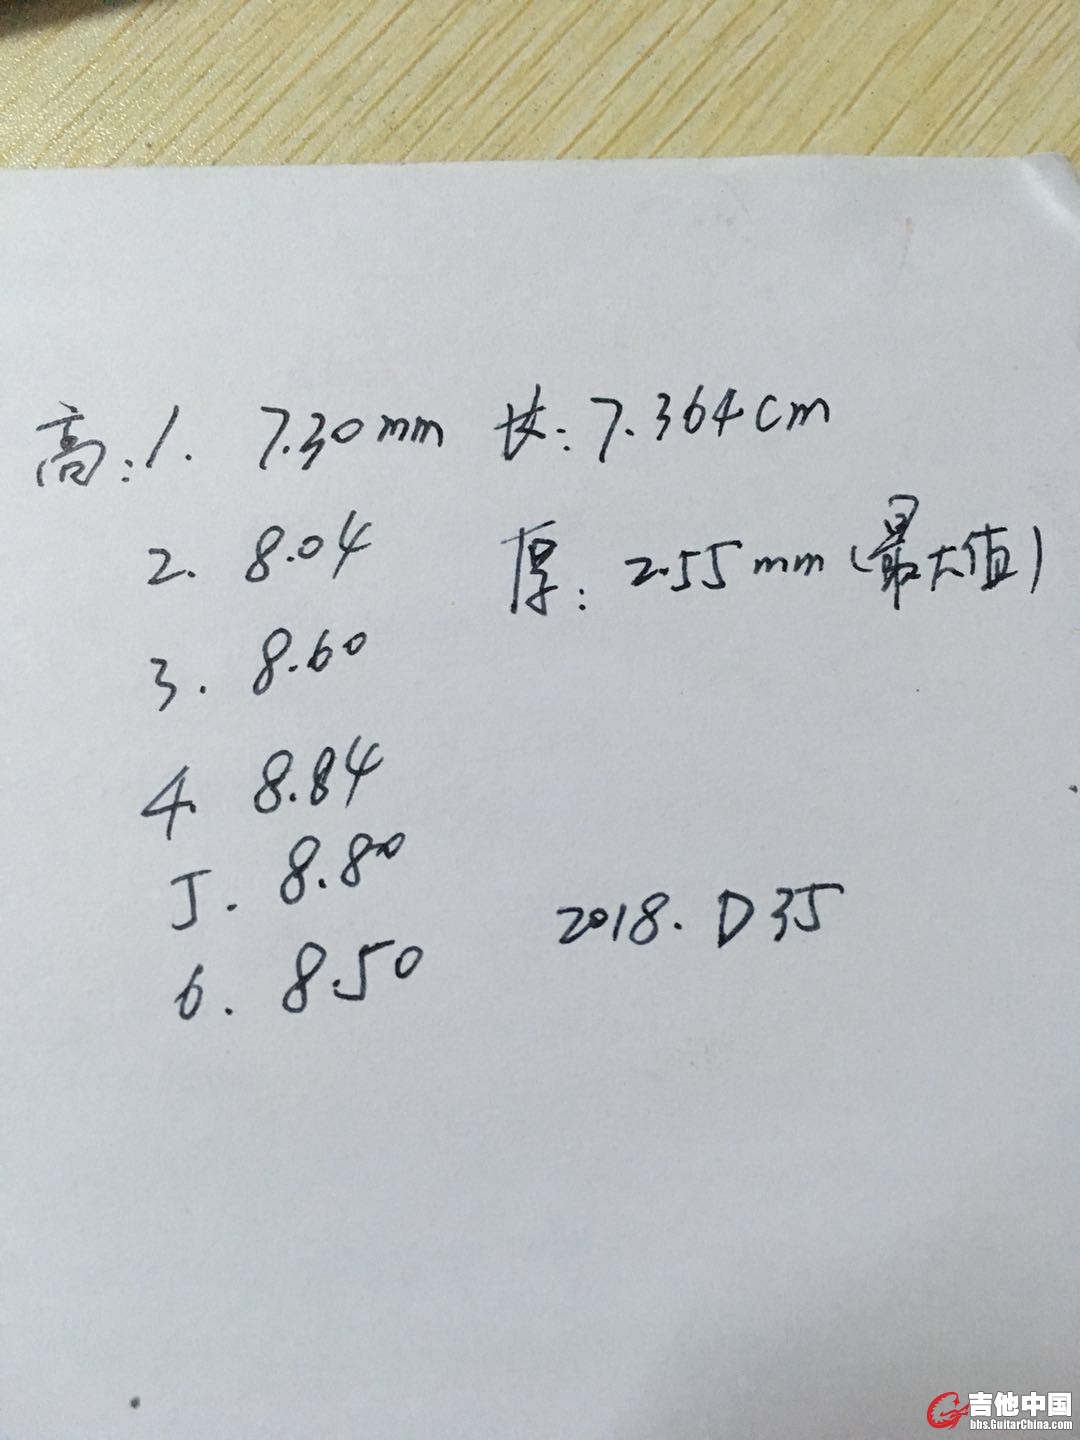 高:1. 7.30mm 长:7.364cm
2. 8.04 厚:2.55mm(最大值)
3. 8.60
4. 8.84
5. 8.80
6. 8.50
2018. D35
吉他中国
bbs.GuitarChina.com